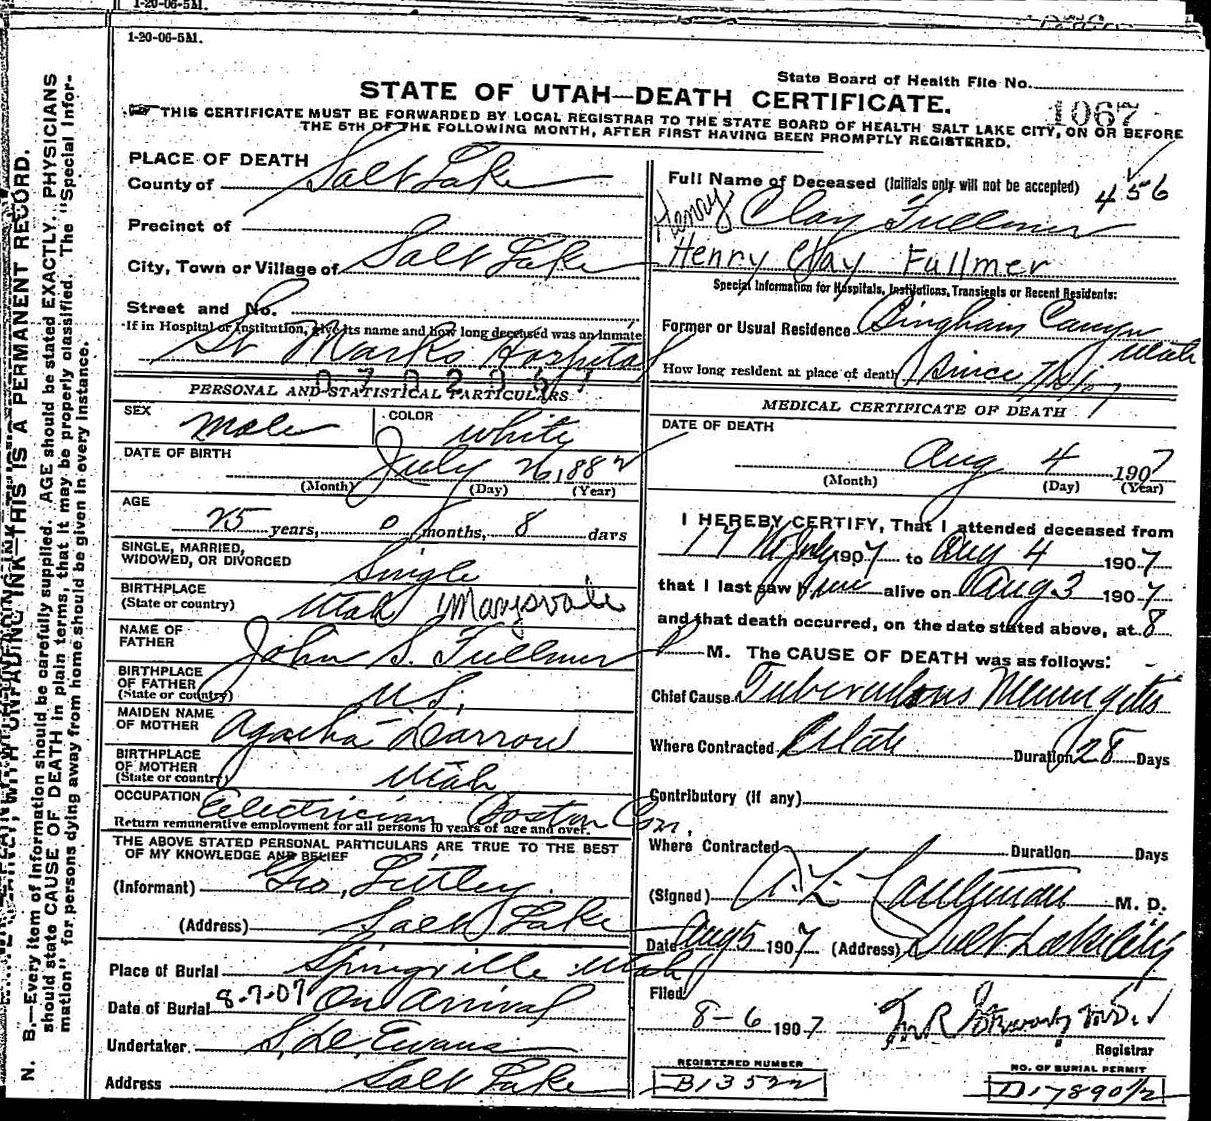 1-20-06-5M.
1-20-06-5M.
State Board of Health File No.
1067
STATE OF UTAH—DEATH CERTIFICATE.
THIS CERTIFICATE MUST BE FORWARDED BY LOCAL REGISTRAR TO THE STATE BOARD OF HEALTH SALT LAKE CITY, ON OR BEFORE
THE 5TH OF THE FOLLOWING MONTH, AFTER FIRST HAVING BEEN PROMPTLY REGISTERED.
N. B.—Every item of information should be carefully supplied. AGE should be stated EXACTLY. PHYSICIANS
should state CAUSE OF DEATH in plain terms, that it may be properly classified. The "Special Infor-
mation" for persons dying away from home should be given in every instance.
WITH UNFADING INK—THIS IS A PERMANENT RECORD.
PLACE OF DEATH
County of Salt Lake
Precinct of
City, Town or Village of Salt Lake
Street and No.
If in Hospital or Institution, give its name and how long deceased was an inmate
St Marks Hospital
PERSONAL AND STATISTICAL PARTICULARS
SEX Male COLOR White
DATE OF BIRTH July 26, 1882
(Month) (Day) (Year)
AGE
25 years, 0 months, 8 days
SINGLE, MARRIED,
WIDOWED, OR DIVORCED Single
BIRTHPLACE
(State or country) Utah Marysvale
NAME OF
FATHER John S. Fullmer
BIRTHPLACE
OF FATHER
(State or country) U.S.
MAIDEN NAME
OF MOTHER Agatha Darrow
BIRTHPLACE
OF MOTHER
(State or country) Utah
OCCUPATION Electrician Boston Con.
Return remunerative employment for all persons 10 years of age and over.
THE ABOVE STATED PERSONAL PARTICULARS ARE TRUE TO THE BEST
OF MY KNOWLEDGE AND BELIEF
(Informant) Geo.
(Address) Salt Lake
Place of Burial Springville Utah
Date of Burial 8-7-07 On Arrival
Undertaker. Evans
Address Salt Lake
Full Name of Deceased (Initials only will not be accepted) 456
Henry Clay Fullmer
Henry Clay Fullmer
Special Information for Hospitals, Institutions, Transients or Recent Residents:
Former or Usual Residence Bingham Canyon
Utah
How long resident at place of death Since
MEDICAL CERTIFICATE OF DEATH
DATE OF DEATH
Aug 4 1907
(Month) (Day) (Year)
I HEREBY CERTIFY, That I attended deceased from
July 1907 to Aug 4 1907
that I last saw him alive on Aug 3 1907
and that death occurred, on the date stated above, at 8
P M. The CAUSE OF DEATH was as follows:
Chief Cause Tuberculous Meningitis
Where Contracted Utah Duration 28 Days
Contributory (if any)
Where Contracted Duration Days
(Signed) M. D.
Date Aug 5 1907 (Address) Salt Lake City
Filed
8-6 1907
Registrar
REGISTERED NUMBER
B13522
NO. OF BURIAL PERMIT
D17890 1/2